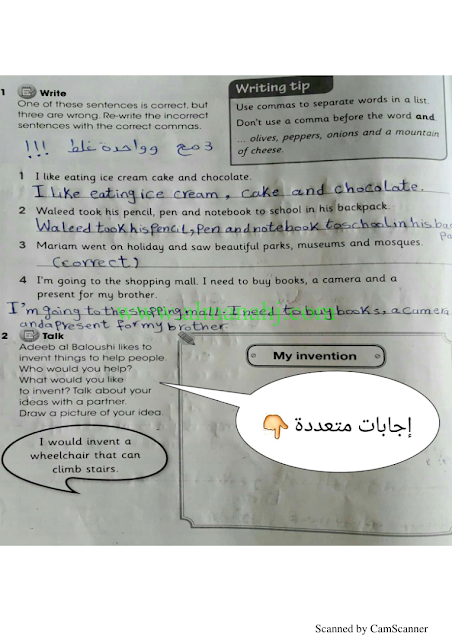 1 Write
One of these sentences is correct, but
three are wrong. Re-write the incorrect
sentences with the correct commas.
Writing tip
Use commas to separate words in a list.
Don't use a comma before the word and.
... olives, peppers, onions and a mountain
of cheese.
3 صح وواحدة غلط !!!
1 I like eating ice cream cake and chocolate.
I like eating ice cream, cake and chocolate.
2 Waleed took his pencil, pen and notebook to school in his backpack.
Waleed took his pencil, pen and notebook to school in his
3 Mariam went on holiday and saw beautiful parks, museums and mosques.
(correct)
4 I'm going to the shopping mall. I need to buy books, a camera and a
present for my brother.
I'm going to the shopping mall. I need to buy books, a camera
and a present for my brother.
2 Talk
Adeeb al Baloushi likes to
invent things to help people.
Who would you help?
What would you like
to invent? Talk about your
ideas with a partner.
Draw a picture of your idea.
My invention
إجابات متعددة
I would invent a
wheelchair that can
climb stairs.
Scanned by CamScanner